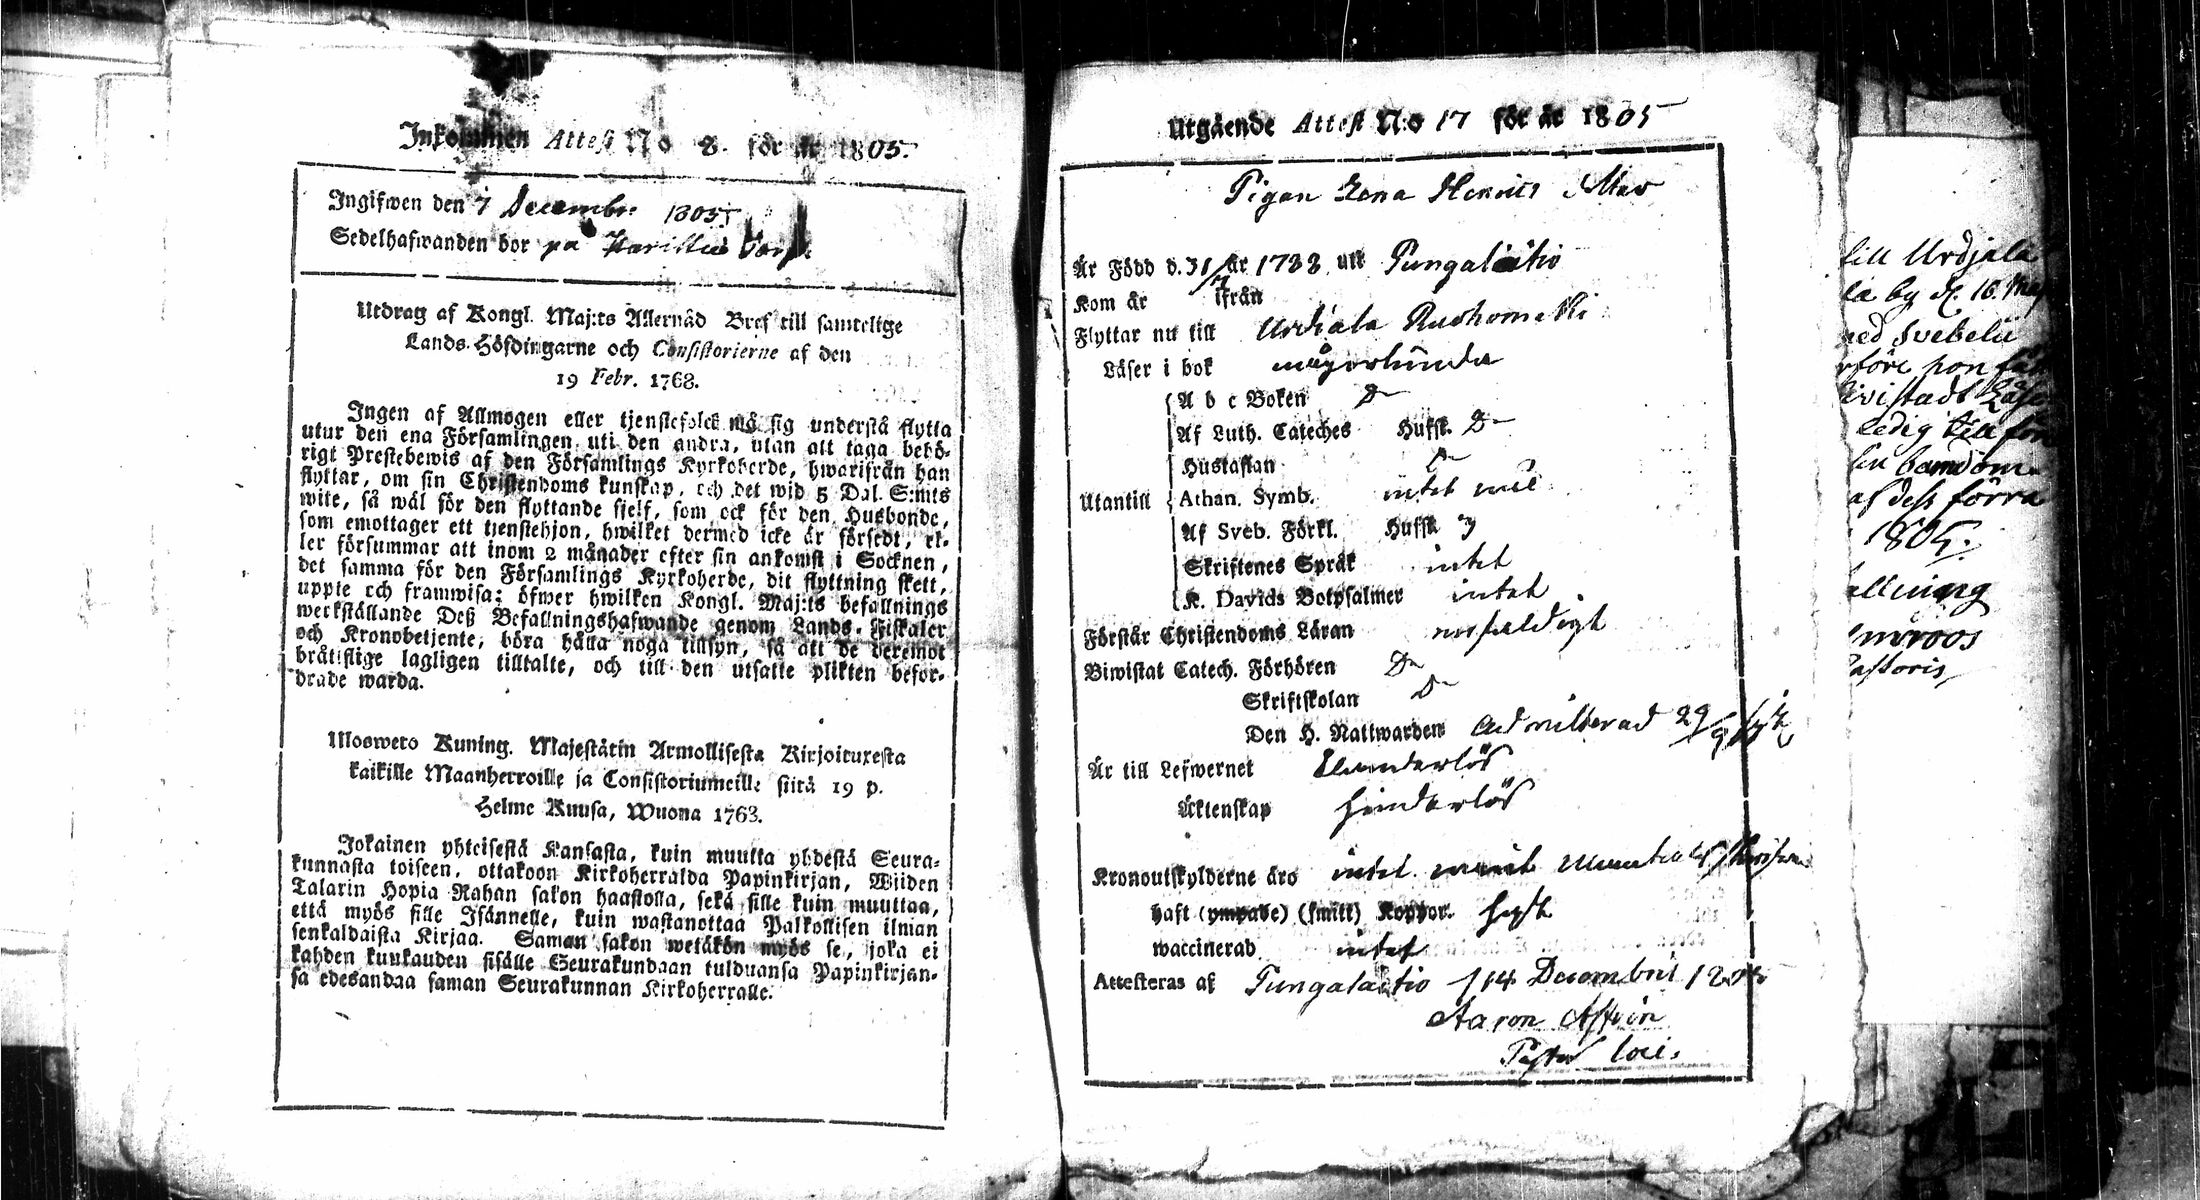 Inkommen Attest No 8. för år 1805.
Ingifwen den 7 Decembr. 1805
Sedelhafwanden bor på Torp.
Utdrag af Kongl. Maj:ts Allernåd Bref till samtelige
Lands-Höfdingarne och Consistorierne af den
19 Febr. 1763.
Ingen af Allmogen eller tjenstefolck må sig understå flytta
utur den ena Församlingen uti den andra, utan att taga behö-
rigt Prestebewis af den Församlings Kyrkoherde, hwarifrån han
flyttar, om sin Christendoms kunskap, och det wid 5 Dal. S:mts
wite, så wäl för den flyttande sjelf, som ock för den Husbonde,
som emottager ett tjenstehjon, hwilket dermed icke är försedt, el-
ler försummar att inom 2 månader efter sin ankomst i Socknen,
det samma för den Församlings Kyrkoherde, dit flyttning skett,
uppte och framwisa; öfwer hwilken Kongl. Maj:ts befallnings
werkställande Deß Befallningshafwande genom Lands-Fiskaler
och Kronobetjente, böra hålla noga tillsyn, så att de deremot
bråtslige lagligen tilltalte, och till den utsatte plikten befor-
drade warda.
Ulosweto Kuning. Majestätin Armollisesta Kirjoituxesta
kaikille Maanherroille ja Consistoriumeille siitä 19 p.
Helme Kuusa, Wuona 1763.
Jokainen yhteisestä Kansasta, kuin muutta yhdestä Seura-
kunnasta toiseen, ottakoon Kirkoherralda Papinkirjan, Wiiden
Talarin Hopia Rahan sakon haastolla, sekä sille kuin muuttaa,
että myös sille Isännelle, kuin wastanottaa Palkollisen ilman
senkaldaista Kirjaa. Saman sakon wetäkön myös se, joka ei
kahden kuukauden sisälle Seurakundaan tulduansa Papinkirjan-
sa edesandaa saman Seurakunnan Kirkoherralle.
Utgående Attest N:o 17 för år 1805
Pigan Lena Henrics
Är Född d. 31/7 år 1788 utt Pungalaitio
Kom år ifrån
Flyttar nu till Urdiala
Läser i bok någorlunda
A b c Boken D~
Af Luth. Cateches Hufst. D~
Hustaflan D~
Utantill Athan. Symb. intet
Af Sveb. Förkl. Hufst. 3
Skriftenes Språk intet
K. Davids Botpsalmer intet
Förstår Christendoms Läran
Biwistat Catech. Förhören D~
Skriftskolan D~
Den H. Nattwarden Admitterad 29/9
Är till Lefwernet Klanderlös
Äktenskap hinderlös
Kronoutskylderne äro intet
haft (ympade) (smitt) Koppor. haft
waccinerad intet
Attesteras af Pungalaitio d 14 Decembris 1805
Aaron
Pastor loci.
till Urdjala
by d. 16. Maji
Svebelii
hon
ledig till
barndom
af dess förra
1805.